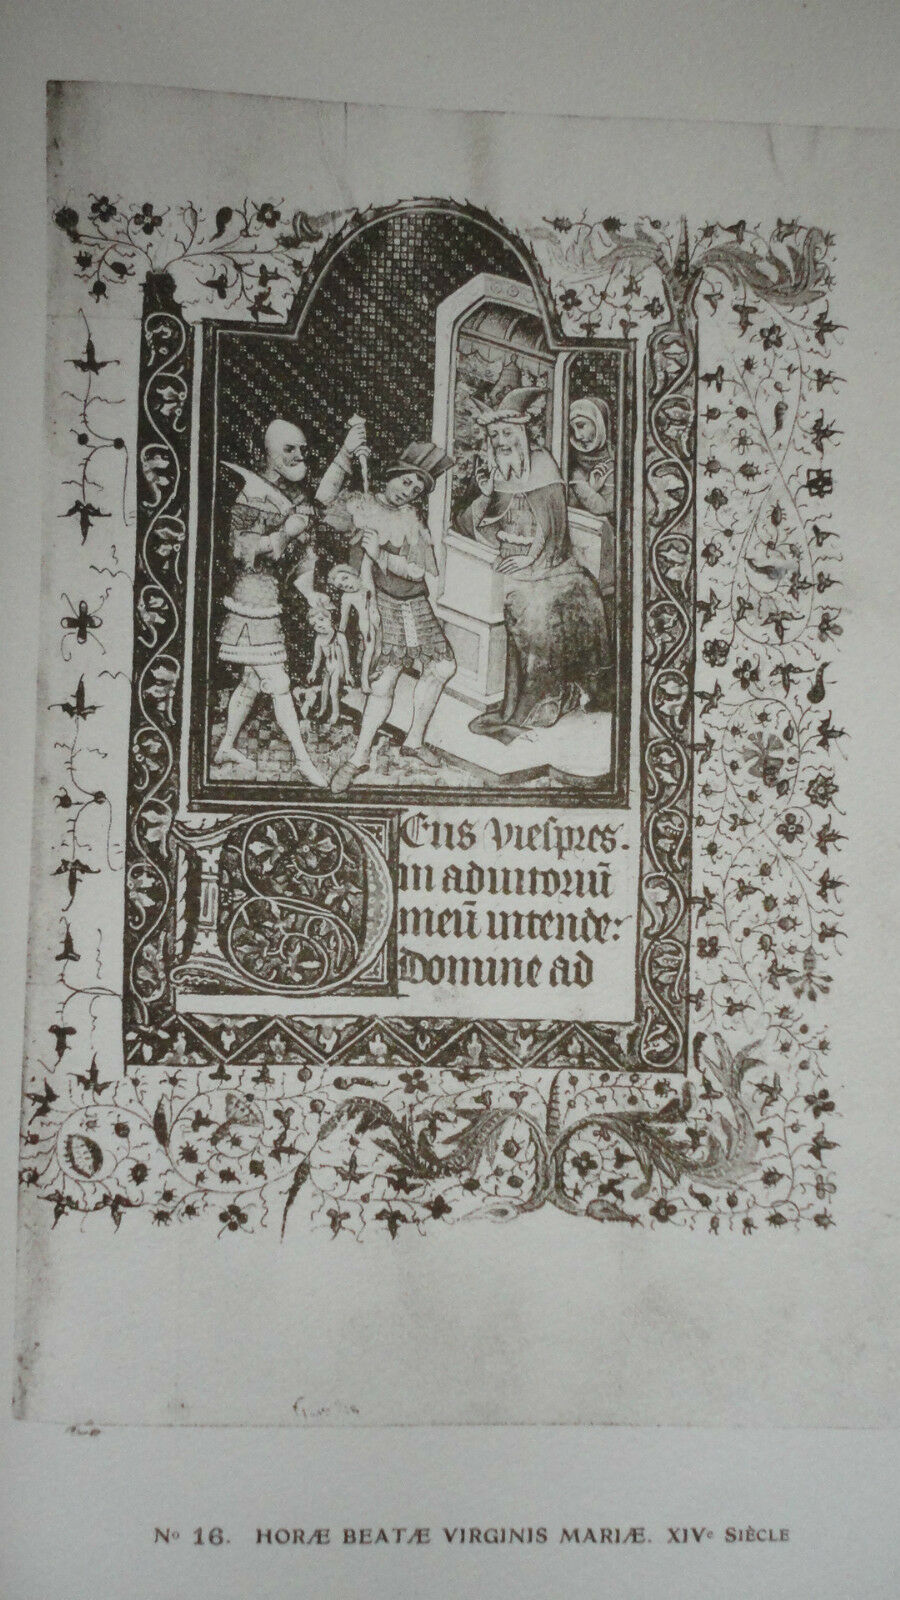 DEus Viespres.
in adiutoriū
meū intende:
Domine ad
Nº 16. HORÆ BEATÆ VIRGINIS MARIÆ. XIVe SIÈCLE